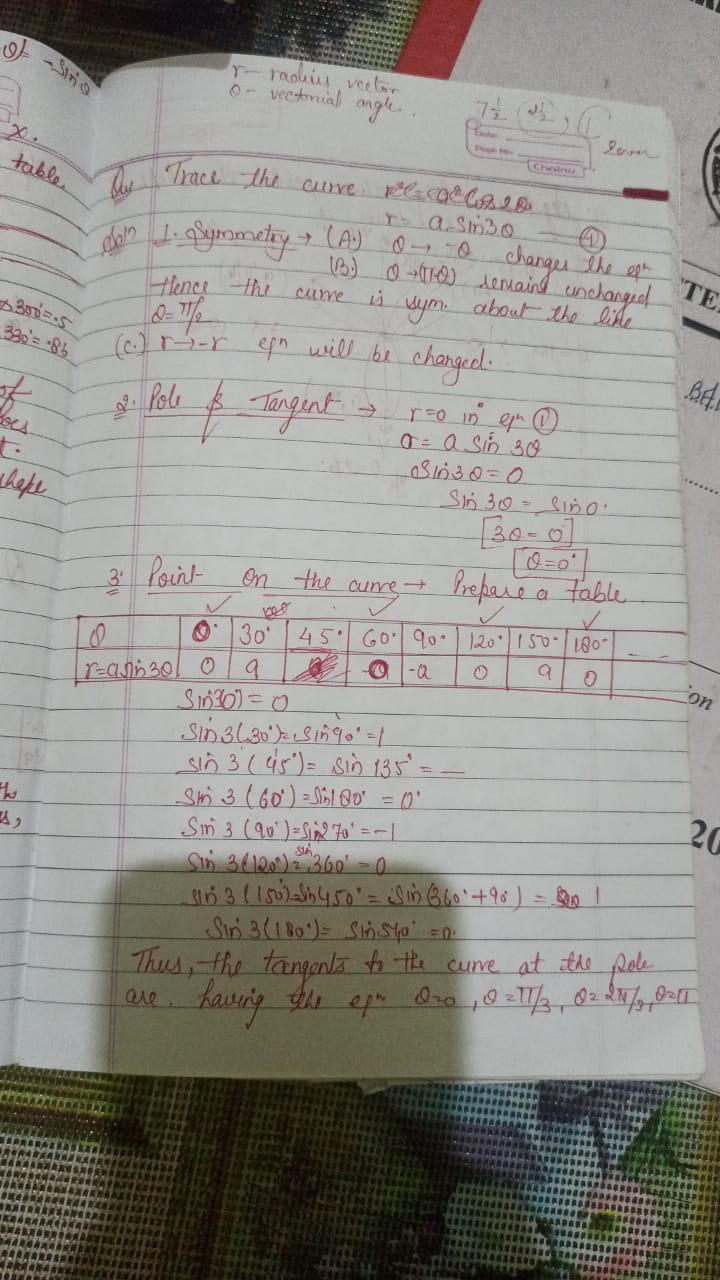 r - radius vector
θ - vectorial angle.
7½ 2½, 1
Seven
θ = -sinθ
x.
table.
Qu Trace the curve r²=a²Cos2θ
r = a sin3θ — ①
Soln 1. Symmetry → (A.) θ → -θ changes the eqn
(B.) θ→(π-θ) remains unchanged
Hence the curve is sym. about the line
θ=π/2
(c.) r→-r eqn will be changed.
300°=.5
330°=.86
2. Pole & Tangent → r=0 in eqn ①
0 = a sin 3θ
Sin3θ=0
Sin 3θ = Sin0°
3θ = 0°
θ=0°
shape
3. Point on the curve → Prepare a table
θ 0° 30° 45° 60° 90° 120° 150° 180° - -
r=a sin3θ 0 a 0 -a 0 a 0
Sin3(0) = 0
Sin3(30°)=Sin90°=1
Sin 3 (45°)= Sin 135° = —
Sin 3 (60°)=Sin180° = 0°
Sin 3 (90°)=Sin270°=-1
Sin 3(120°)=sin 360° = 0
Sin 3(150°)=Sin450°= Sin(360°+90°) = 1
Sin 3(180°)= Sin540° =0.
Thus, the tangents to the curve at the pole
are having the eqn θ=0, θ=π/3, θ=2π/3, θ=π
TE
on
20